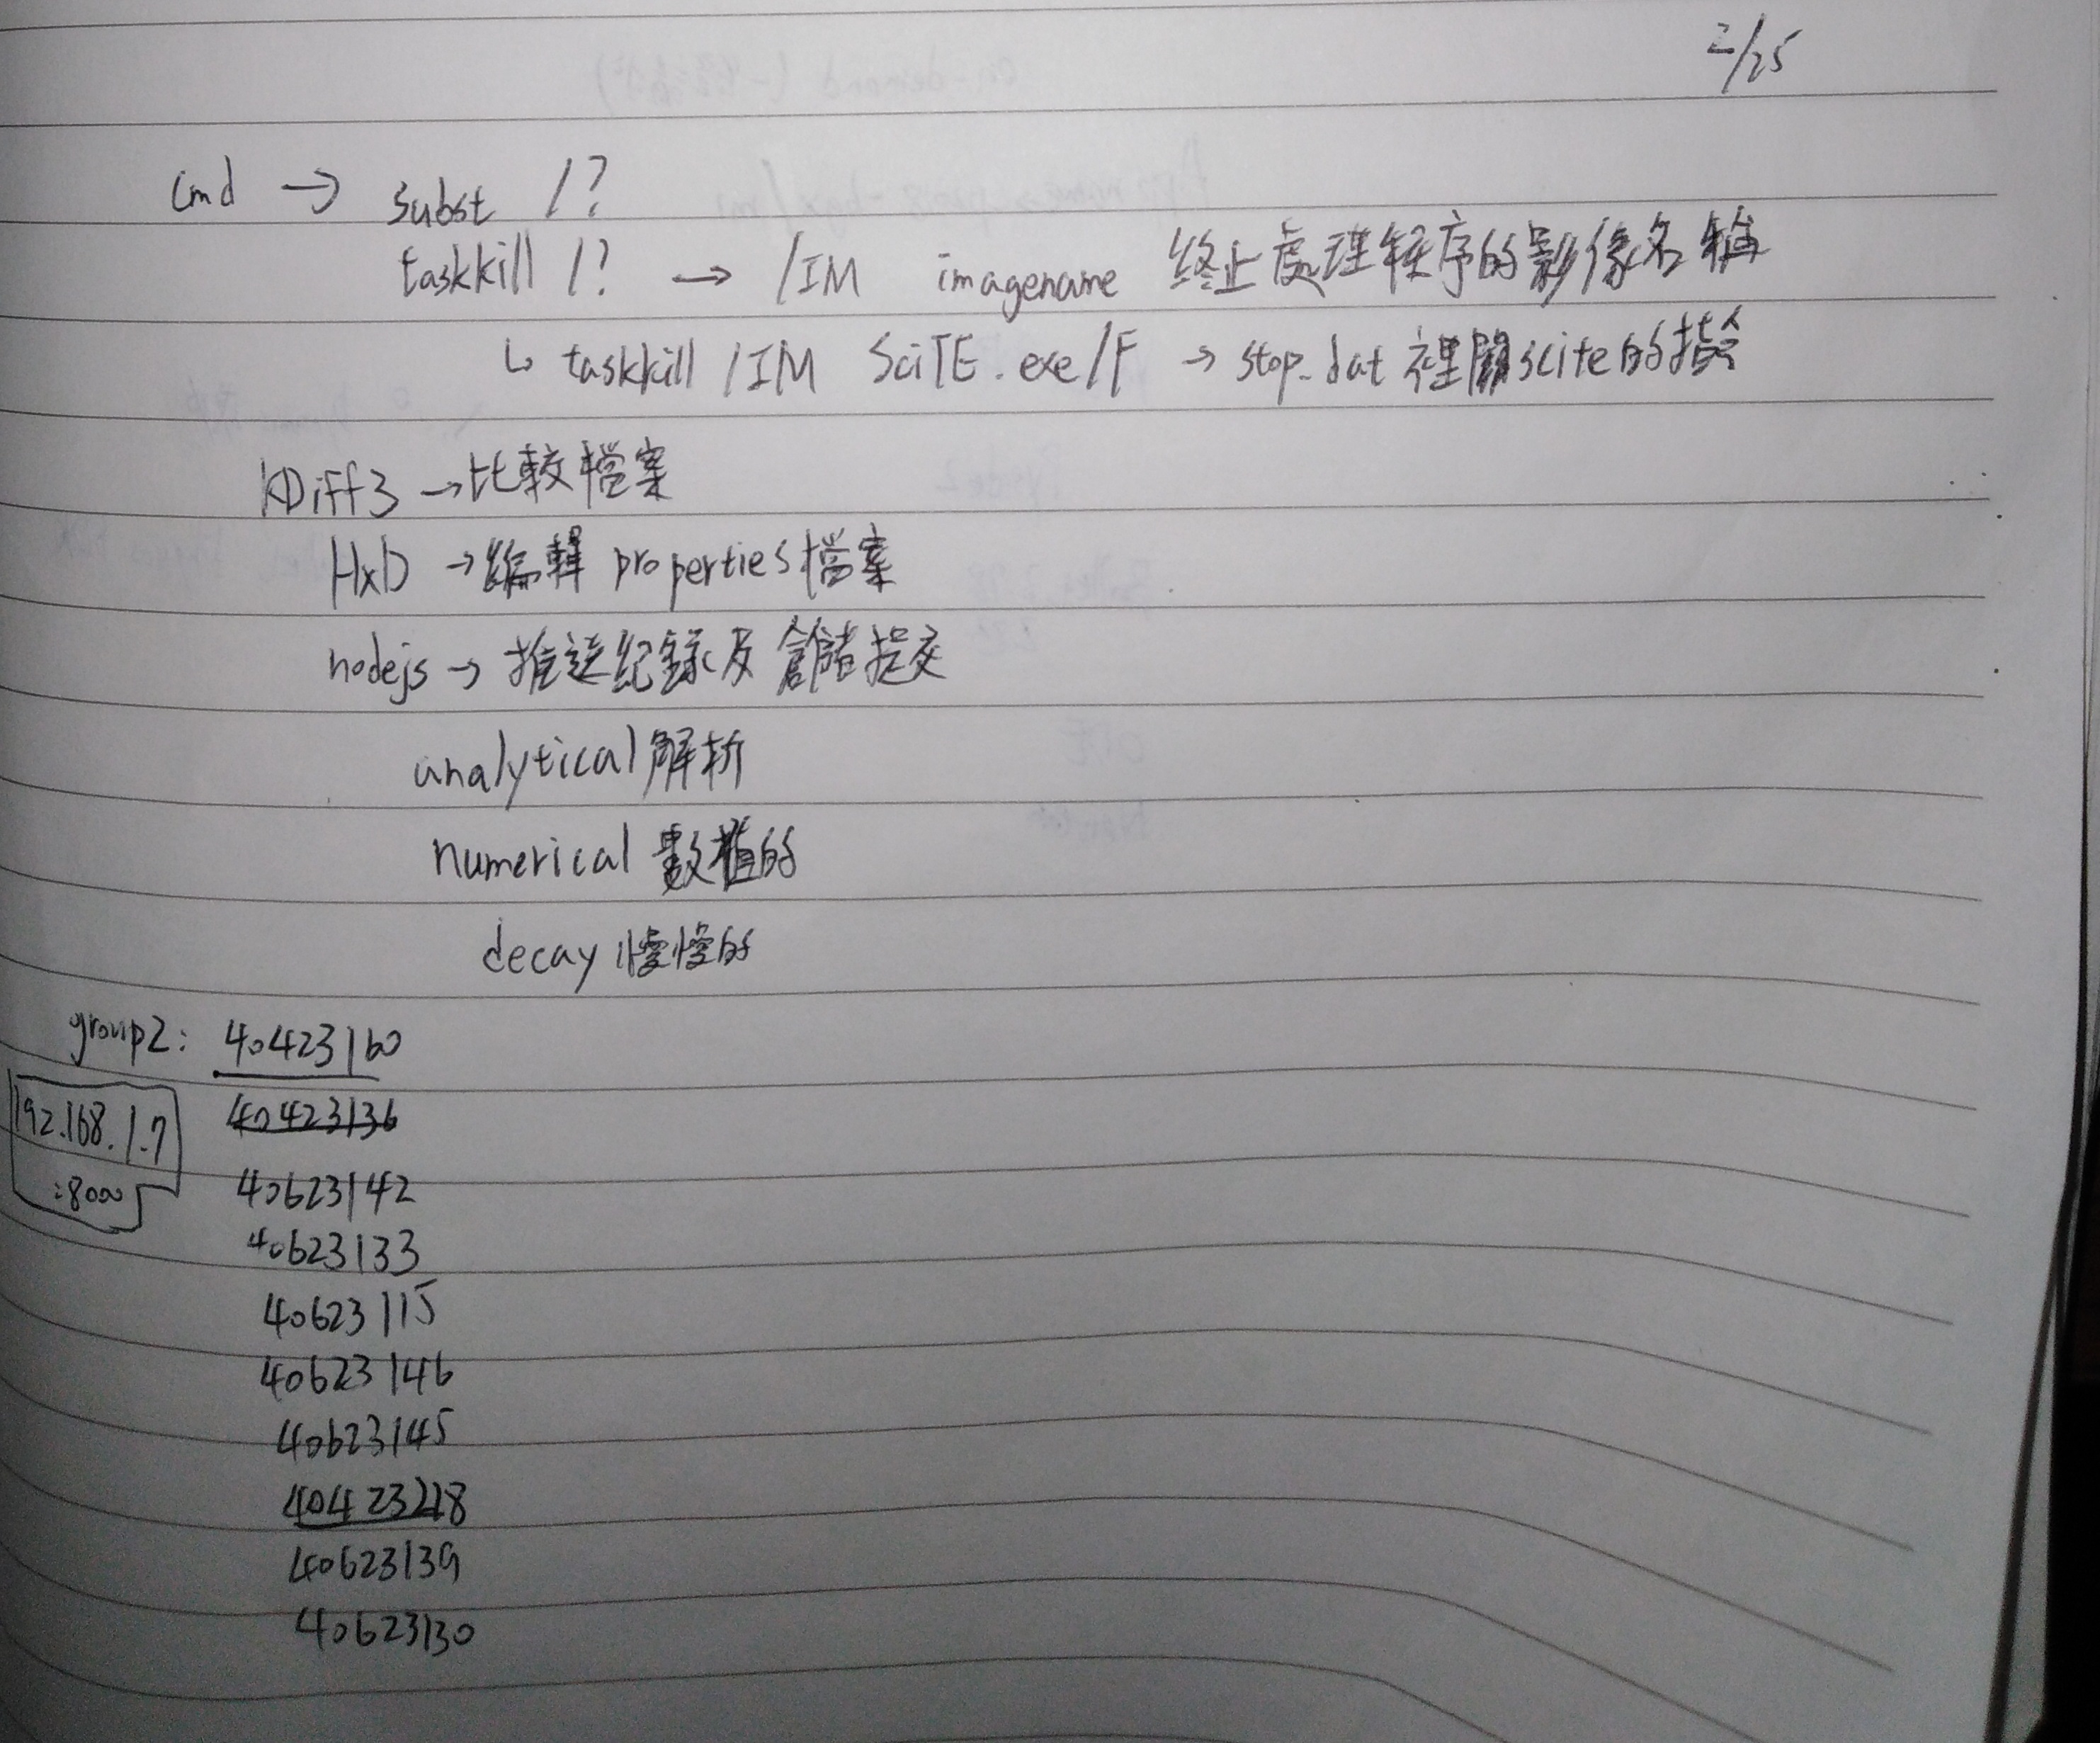 2/25
cmd → subst /?
taskkill /? → /IM imagename 終止處理程序的影像名稱
↳ taskkill /IM SciTE.exe/F → stop.dat 裡關scite的指令
KDiff3 → 比較檔案
HxD → 編輯 properties檔案
nodejs → 推送紀錄及倉儲提交
analytical 解析
numerical 數值的
decay 慢慢的
group2: 40423160
40423136
192.168.1.7
:8000
40623142
40623133
40623115
40623146
40623145
40423218
40623139
40623130